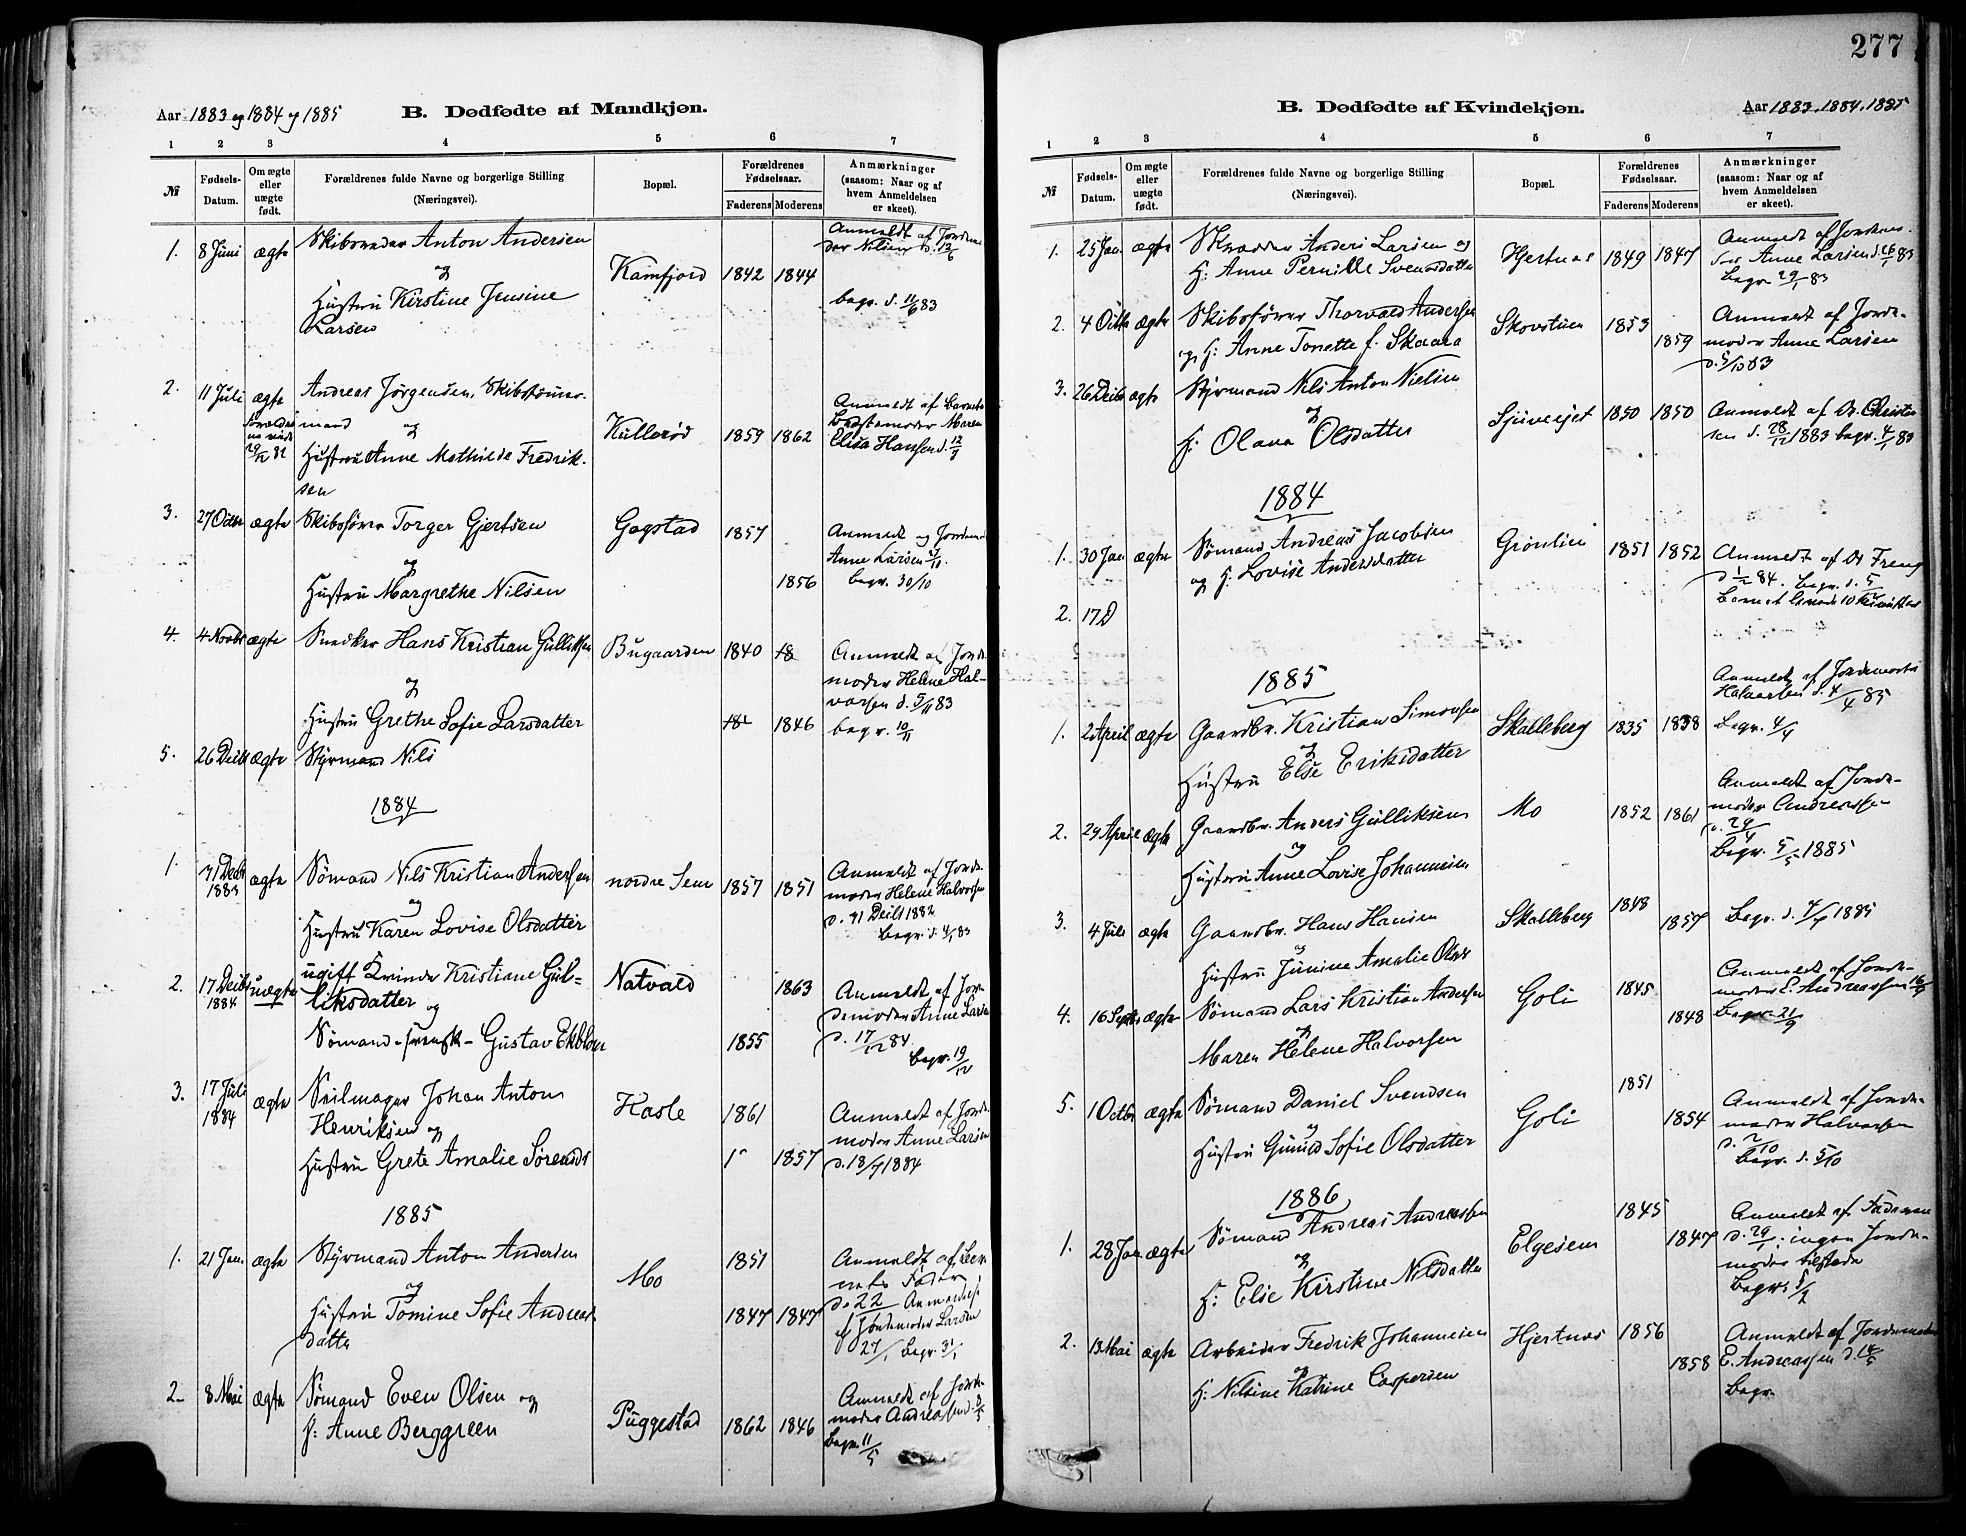 277
Aar 1883 og 1884 og 1885
B. Dødfødte af Mandkjøn.
1 2 3 4 5 6 7
№
Fødsels-
Datum.
Om ægte
eller
uægte
født.
Forældrenes fulde Navne og borgerlige Stilling
(Næringsvei).
Bopæl.
Forældrenes
Fødselsaar.
Faderens Moderens
Anmærkninger
(saasom: Naar og af
hvem Anmeldelsen
er skeet).
1. 8 Juni ægte Skibsreder Anton Andersen
og
Hustru Kirstine Jensine
Larsen
Kamfjord 1842 1844
Anmeldt af Jordmo
der Nilsen d. 12/6
begr. d. 11/6 83
2. 11 Juli ægte
Forældre
29/12 82
Andreas Jørgensen, Skibstømmer-
mand og
Hustru Anne Mathilde Fredrik-
sen
Kullerød 1859 1862
Anmeldt af Barnets
Bedstemoder Maren
Elisa Hansen d. 12/7
3. 27 Octbr ægte Skibsfører Torger Gjertsen
og
Hustru Margrethe Nilsen
Gogstad 1857
1856
Anmeldt og Jordemo
Anne Larsen
begr. 30/10
4. 4 Novbr ægte Snedker Hans Kristian Gulliksen
og
Hustru Grethe Sofie Larsdatter
Bugaarden 1840 18
18 1846
Anmeldt af Jorde-
moder Helene Hal-
vorsen d. 5/11 83
begr. 10/11
5. 26 Decbr ægte Styrmand Nils
1884
1. 31 Decbr
1883
ægte Sømand Nils Kristian Andersen
og
Hustru Karen Lovise Olsdatter
nordre Sem 1857 1851
Anmeldt af Jorde-
moder Helene Halvorsen
d. 31 Decbr 1882
Begr. d. 4/1 83
2. 17 Decbr
1884
uægte ugift Kvinde Kristiane Gul-
liksdatter og
Sømand - svensk - Gustav Ekblom
Natvald 1863
1855
Anmeldt af Jor-
demoder Anne Larsen
d. 17/12 84.
Begr. 19/12
3. 17 Juli
1884
ægte Seilmager Johan Anton
Henriksen og
Hustru Grete Amalie Sørensds
Kasle 1861
1857
Anmeldt af Jorde-
moder Anne Larsen
d. 18/7 1884
1885
1. 21 Jan. ægte Styrmand Anton Andersen
og
Hustru Tomine Sofie Andreas
datter
Mo 1851
1847 1847
Anmeldt af Bar-
nets Fader
d. 22
af Jordemoder Larsen
27/1 Begr. 31/1
2. 8 Mai ægte Sømand Even Olsen og
H: Anne Berggreen
Puggestad 1862 1846
Anmeldt af Jorde-
moder Andreassen d. 8/5
Begr. 11/5
B. Dødfødte af Kvindekjøn.
Aar 1883. 1884. 1885
1 2 3 4 5 6 7
№
Fødsels-
Datum.
Om ægte
eller
uægte
født.
Forældrenes fulde Navne og borgerlige Stilling
(Næringsvei).
Bopæl.
Forældrenes
Fødselsaar.
Faderens Moderens
Anmærkninger
(saasom: Naar og af
hvem Anmeldelsen
er skeet).
1. 25 Jan. ægte Skrædder Anders Larsen og
H: Anne Pernille Svensdatter
Hjertnes 1849 1847
Anmeldt af Jordemo-
der Anne Larsen d. 26/1 83
Begr. 29/1 83
2. 4 Octb ægte Skibsfører Thorvald Andersen
og H: Anne Tonette f. Skaara
Skovstuen 1853
1859
Anmeldt af Jorde-
moder Anne Larsen
d. 5/10 83
3. 26 Decbr ægte Styrmand Nils Anton Nielsen
og
H: Olava Olsdatter
Sjuveiset 1850 1850
Anmeldt af Dr. Christen
sen d. 28/12 1883 begr. 4/1 83
1884
1. 30 Jan ægte Sømand Andreas Jacobsen
og H: Lovise Andersdatter
Grønlien 1851 1852
Anmeldt af Dr Freng
d. 1/2 84. begr. d. 5/2
Barnet levede 10 Minutter
2. 17 D
1885
1. 2 April ægte Gaardbr. Kristian Simonsen
og
Hustru Else Eriksdatter
Skalleberg 1835 1838
Anmeldt af Jordemoder
Halvorsen d. 4/4 85
Begr. 4/4
2. 29 April ægte Gaardbr. Anders Gulliksen
og
Hustru Anne Lovise Johannesen
Mo 1852 1861
Anmeldt af Jorde-
moder Andreassen
d. 29/4
Begr. 5/5 1885
3. 4 Juli ægte Gaardbr. Hans Hansen
og
Hustru Junine Amalie Olsds
Skalleberg 1848
1857
Begr. d. 7/7 1885
4. 16 Septbr ægte Sømand Lars Kristian Andersen
og
Maren Helene Halvorsen
Goli 1845
1848
Anmeldt af Jorde-
moder E. Andreassen 16/9
Begr. 21/9
5. 1 Octbr ægte Sømand Daniel Svendsen
og
Hustru Gunild Sofie Olsdatter
Goli 1851
1854
Anmeldt af Jorde-
moder Halvorsen
d. 2/10
Begr. d. 5/10
1886
1. 28 Jan ægte Sømand Andreas Andreassen
og
H: Else Kirstine Nilsdatter
Elgesem 1845
1847
Anmeldt af Faderen
d. 29/1. ingen Jorde-
moder tilstede
Begr.
2. 13 Mai ægte Arbeider Fredrik Johannesen
og
H: Nilsine Katrine Caspersen
Hjertnes 1856
1858
Anmeldt af Jordemoder
E. Andreassen d. 14/5
Begr.